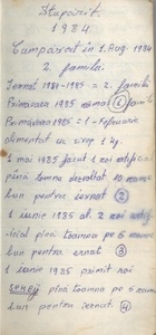 Stupărit.
1984.
Cumpărat în 1. Aug. 1984
2. familii.
Iernat 1984-1985 = 2. familii
Primăvara 1985 numai 1 famil
Primăvara 1985 = 1 - Februarie
alimentat cu sirop 1 kg.
1 mai 1985 făcut 1 roi artific
până toamna 10 rame
bun pentru iernat (2)
1 iunie 1985 al. 2 roi artif-
icial până toamna pe 6 rame
bun pentru ernat (3)
1 iunie 1985 primit roi
până toamna pe 5 rame
bun pentru iernat. (4)